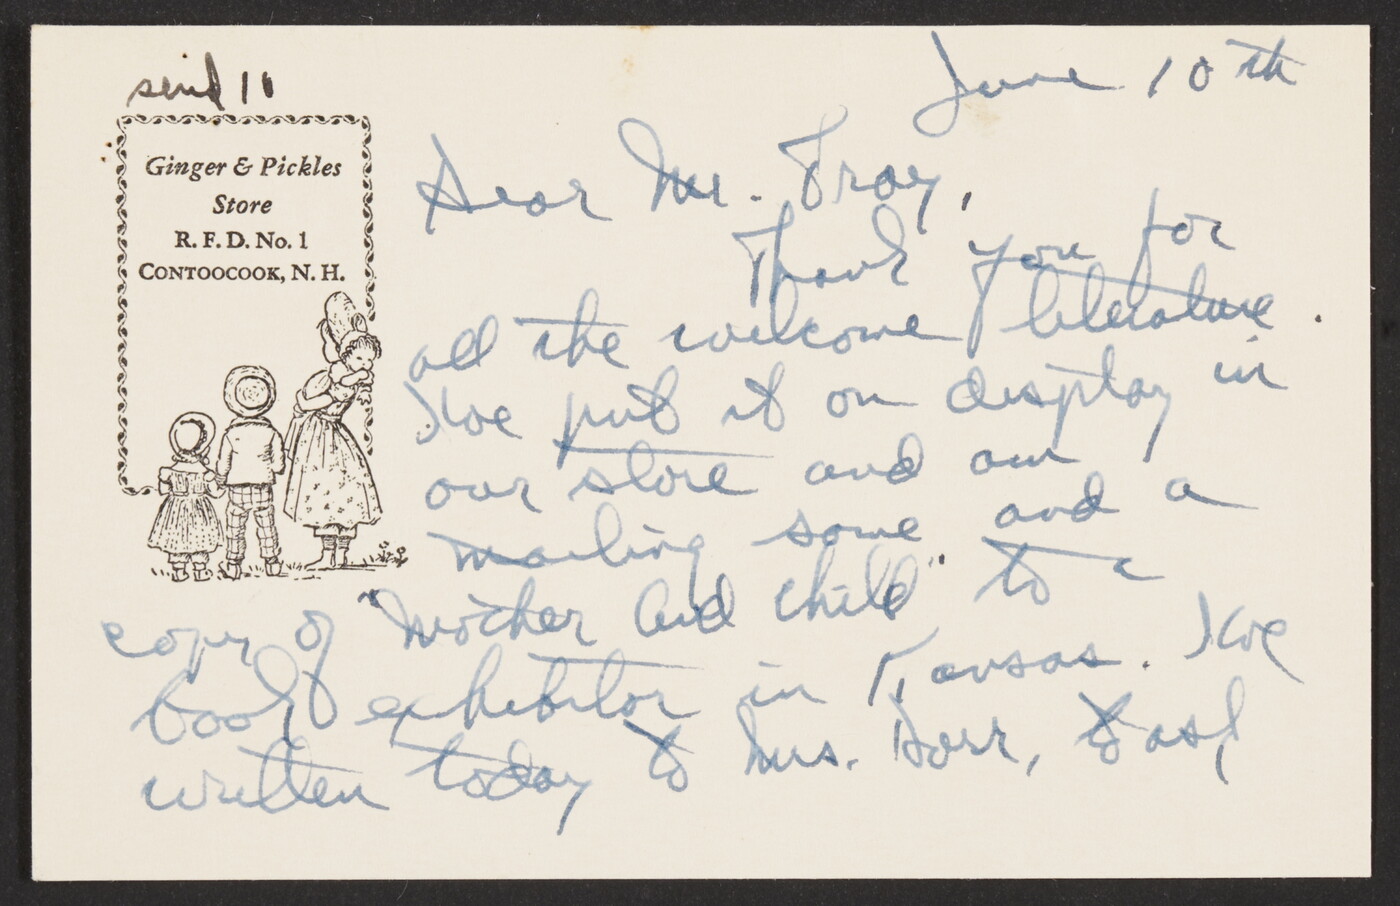 send 11
Ginger & Pickles
Store
R. F. D. No. 1
CONTOOCOOK, N. H.
June 10th
Dear Mr. Fray,
Thank you for
all the welcome literature.
I've put it on display in
our store and am
mailing some and a
copy of "Mother and Child" to a
book exhibitor in Kansas. I've
written today to Mrs. Dorr, to ask